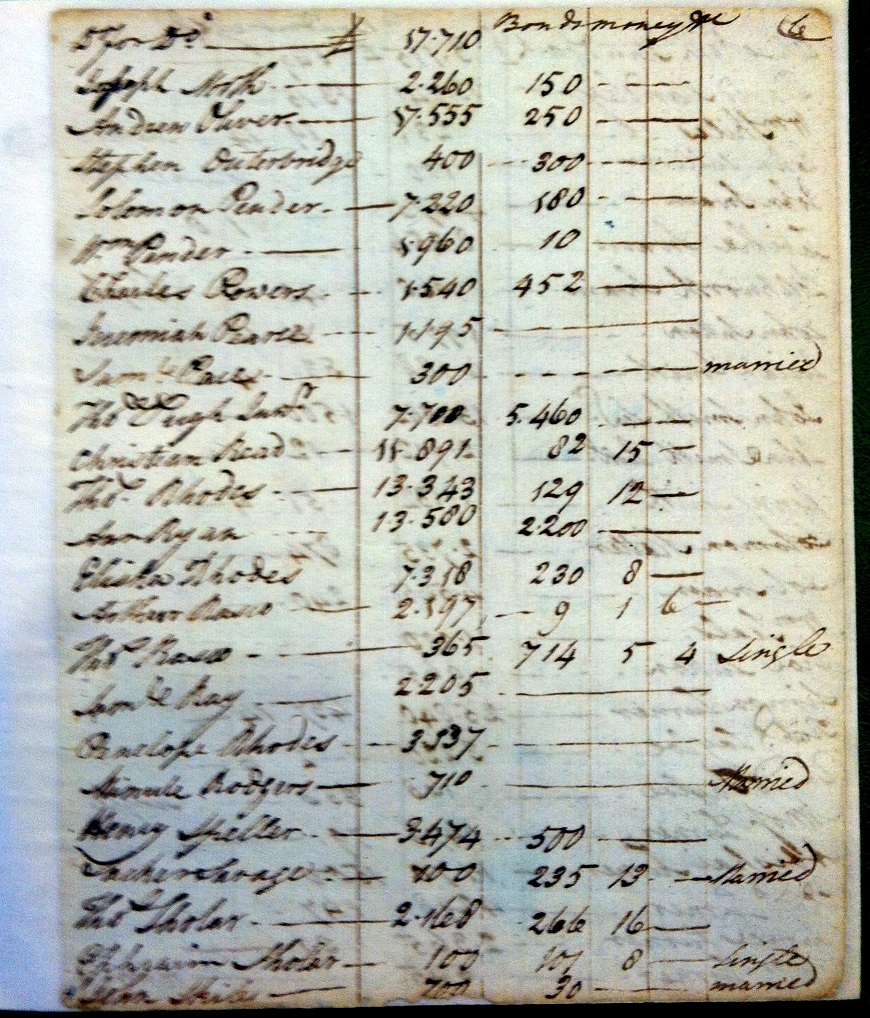 Bonds money &c 6
Dr for Do £ 17.710
Joseph North 2.260 150
Andrew Oliver 17.555 250
Stephen Outerbridge 400 300
Solomon Pender 7.220 180
Wm Pender 1.960 10
Charles Powers 1.540 452
Jeremiah Pearce 1.195
Saml Pace 300 married
Tho Pugh Junr 7.700 5.460
Christian Read 11.891 82 15
Thos Rhodes 13.343 129 12
Ann Ryan 13.580 2.200
Elisha Rhodes 7.318 230 8
Arthur Rasco 2.197 9 1 6
Thos Rasco 365 714 5 4 Single
Saml Ray 2205
Penelope Rhodes 3.337
Rodgers 710 Married
Henry Speller 3.474 500
Savage 100 235 13 Married
Thos Sholar 2.168 266 16
Ephraim Sholar 100 101 8 Single
John 700 30 married